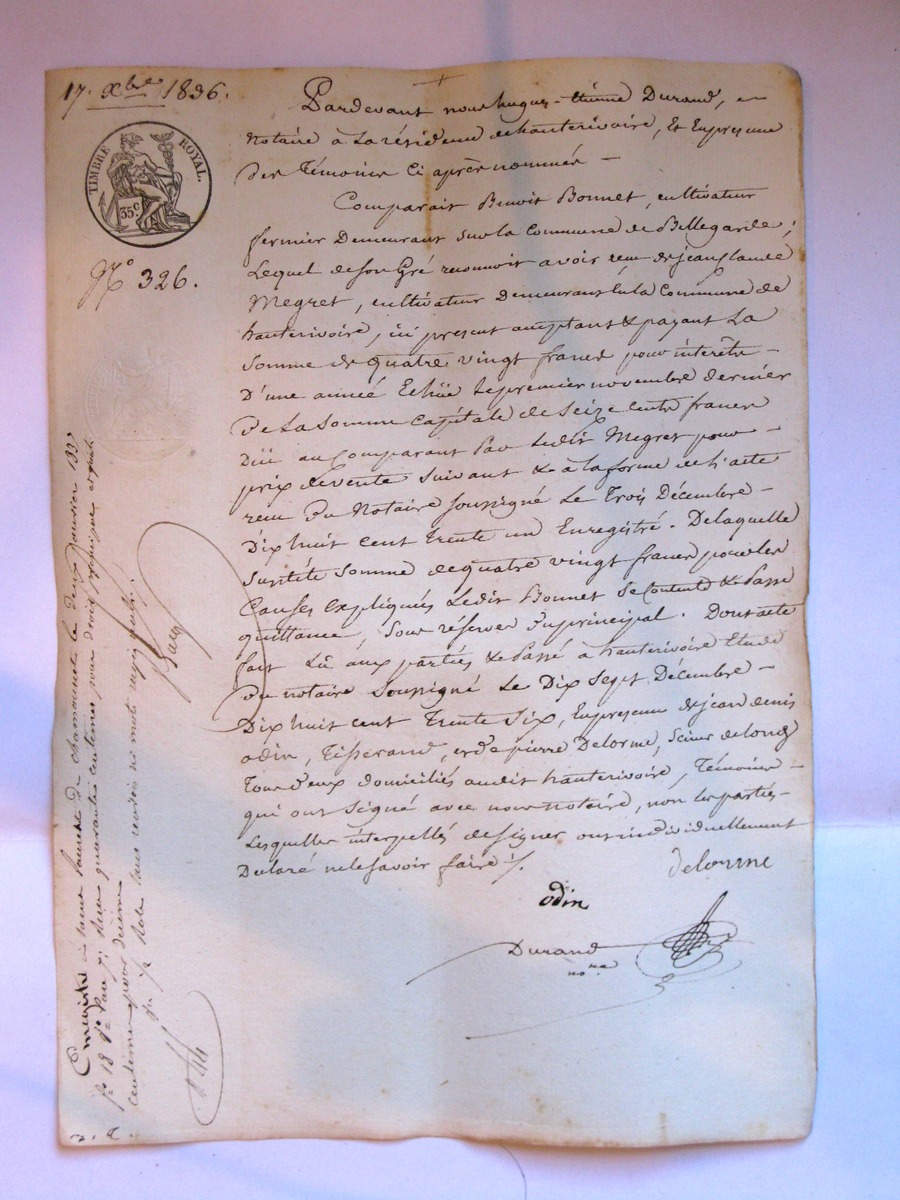 17. Xbre 1836.
TIMBRE ROYAL.
35c
No 326.
Pardevant nous hugues-étienne Durand,
Notaire à La résidence de hauterivoire, Et En présence
Des Témoins Ci après nommés –
Comparait Benoit Bonnet, cultivateur
fermier Demeurant sur la Commune de Bellegarde ;
Lequel de son Gré reconnoit avoir reçu de jean Claude
Megret, cultivateur Demeurant En la Commune de
hauterivoire, ici présent acceptant & payant La
Somme de quatre vingt francs pour intérêts –
D'une année Echüe Le premier novembre dernier
De La Somme Capitale de Seize cents francs
Düe au Comparant Par Ledit Megret pour –
prix de vente Suivant & à la forme de l'acte
reçu Du Notaire soussigné Le Trois Décembre –
Dix huit cent trente un Enregistré. De laquelle
Susditte Somme de quatre vingt francs pour les
Causes expliqués Ledit Bonnet Se Contente & Passe
quittance, Sous réserves Du principal. Dont acte
fait Lû aux parties & Passé à hauterivoire Etude
Du notaire Soussigné Le Dix Sept Décembre –
Dix huit cent Trente Six, En présence de jean denis
odin, Tisserand, et de pierre Delorme, Scieur de long
Tous deux domiciliés audit hauterivoire, Témoins –
qui ont Signé avec nous notaire, non les parties
Lesquelles interpellés de signer ont individuellement
Déclaré ne le savoir faire ./.
delorme
odin
Durand
nore
Enregistré à Saint Laurent de chamousset le deux janvier 1837
fo 18 Ro reçu quarante centimes pour droit principal et quatre
centimes pour décime